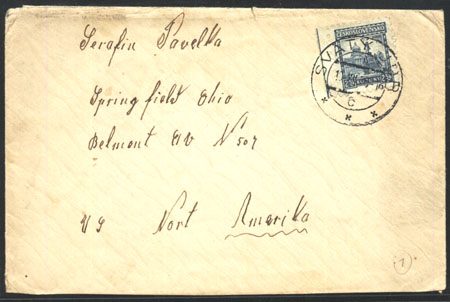 Serafin Pavelka
Springfield Ohio
Belmont AV N 507
US Nort Amerika
ČESKOSLOVENSKO
SVATÝ
c
1